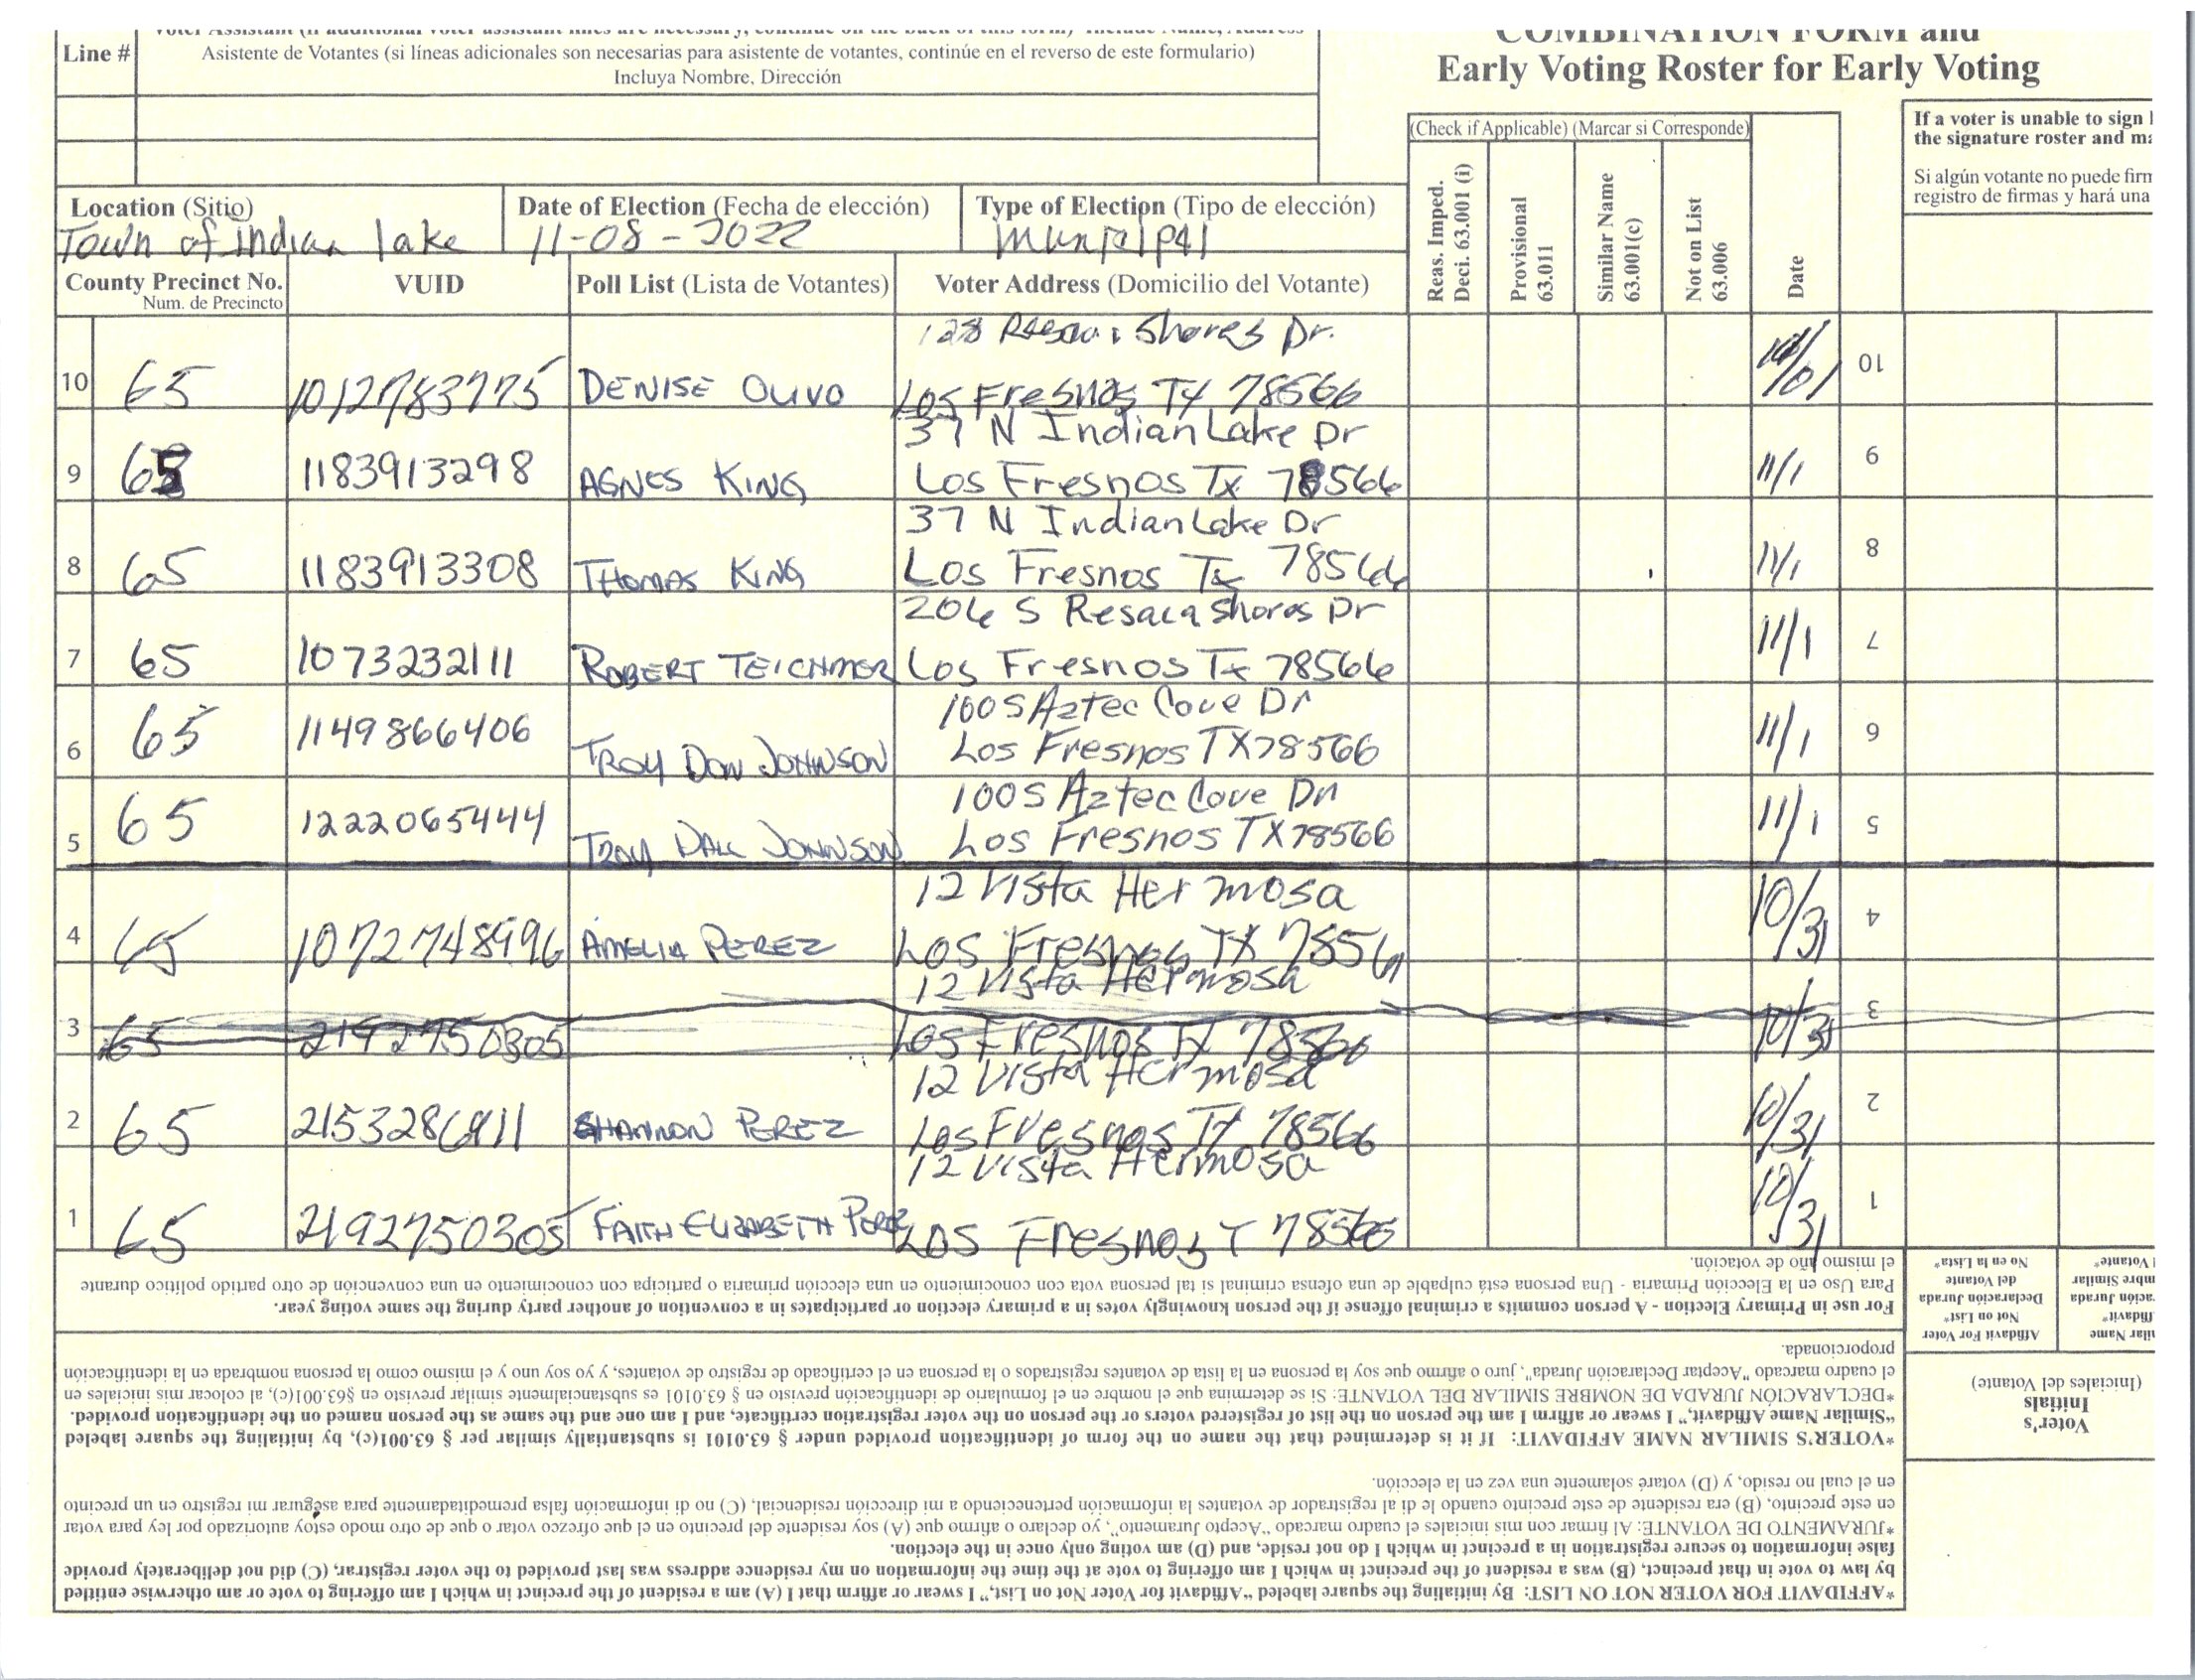 Line #
Asistente de Votantes (si líneas adicionales son necesarias para asistente de votantes, continúe en el reverso de este formulario)
Incluya Nombre, Dirección
COMBINATION FORM and
Early Voting Roster for Early Voting
(Check if Applicable) (Marcar si Corresponde)
Reas. Imped.
Decl. 63.001 (i)
Provisional
63.011
Similar Name
63.001(c)
Not on List
63.006
Date
If a voter is unable to sign
the signature roster and
Si algún votante no puede
registro de firmas y hará una
Location (Sitio)
Town of indian lake
Date of Election (Fecha de elección)
11-08-2022
Type of Election (Tipo de elección)
County Precinct No.
Num. de Precincto
VUID
Poll List (Lista de Votantes)
Voter Address (Domicilio del Votante)
128 Shores Dr.
10 65 1012783775 DENISE OLIVO Los Fresnos TX 78566 10
37 N Indian Lake Dr
9 65 1183913298 AGNES KING Los Fresnos Tx 78566 11/1 9
37 N Indian Lake Dr
8 65 1183913308 THOMAS KING Los Fresnos Tx 78566 11/1 8
206 S Resaca Shores Dr
7 65 1073232111 ROBERT Los Fresnos Tx 78566 11/1 7
100 S Aztec Cove Dr
6 65 1149866406 TROY DON JOHNSON Los Fresnos TX 78566 11/1 6
100 S Aztec Cove Dr
5 65 1222065444 TROY JOHNSON Los Fresnos TX 78566 11/1 5
12 Vista Hermosa
4 65 1072748996 AMELIA PEREZ Los Fresnos TX 7856 10/31 4
12 Vista Hermosa
3 65 2192750305 Los Fresnos TX 10/31 3
12 Vista Hermosa
2 65 SHANNON PEREZ Los Fresnos TX 78566 10/31 2
12 Vista Hermosa
1 65 2192750305 FAITH ELIZABETH PEREZ Los Fresnos T 78566 10/31 1
el mismo año de votación.
Para Uso en la Elección Primaria - Una persona está culpable de una ofensa criminal si tal persona vota con conocimiento en una elección primaria o participa con conocimiento en una convención de otro partido político durante
For use in Primary Election - A person commits a criminal offense if the person knowingly votes in a primary election or participates in a convention of another party during the same voting year.
No en la Lista*
del Votante
Declaración Jurada
Not on List*
Affidavit For Voter
proporcionada.
el cuadro marcado "Aceptar Declaración Jurada", juro o afirmo que soy la persona en la lista de votantes registrados o la persona en el certificado de registro de votantes, y yo soy uno y el mismo como la persona nombrada en la identificación
*DECLARACIÓN JURADA DE NOMBRE SIMILAR DEL VOTANTE: Si se determina que el nombre en el formulario de identificación previsto en § 63.0101 es substancialmente similar previsto en §63.001(c), al colocar mis iniciales en
"Similar Name Affidavit," I swear or affirm I am the person on the list of registered voters or the person on the voter registration certificate, and I am one and the same as the person named on the identification provided.
*VOTER'S SIMILAR NAME AFFIDAVIT: If it is determined that the name on the form of identification provided under § 63.0101 is substantially similar per § 63.001(c), by initialing the square labeled
(Iniciales del Votante)
Initials
Voter's
en el cual no resido, y (D) votaré solamente una vez en la elección.
en este precinto, (B) era residente de este precinto cuando le di al registrador de votantes la información perteneciendo a mi dirección residencial, (C) no di información falsa premeditadamente para asegurar mi registro en un precinto
*JURAMENTO DE VOTANTE: Al firmar con mis iniciales el cuadro marcado "Acepto Juramento", yo declaro o afirmo que (A) soy residente del precinto en el que ofrezco votar o que de otro modo estoy autorizado por ley para votar
false information to secure registration in a precinct in which I do not reside, and (D) am voting only once in the election.
by law to vote in that precinct, (B) was a resident of the precinct in which I am offering to vote at the time the information on my residence address was last provided to the voter registrar, (C) did not deliberately provide
*AFFIDAVIT FOR VOTER NOT ON LIST: By initialing the square labeled "Affidavit for Voter Not on List," I swear or affirm that I (A) am a resident of the precinct in which I am offering to vote or am otherwise entitled